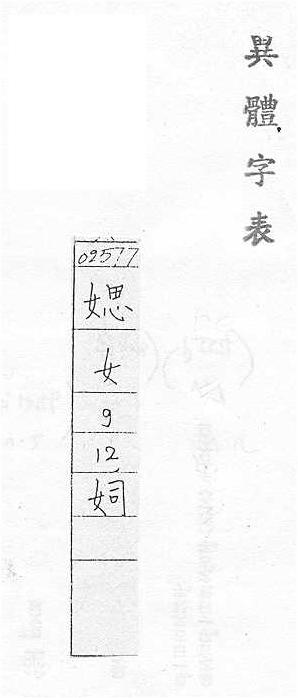 異體字表
02577
媤
女
9
12